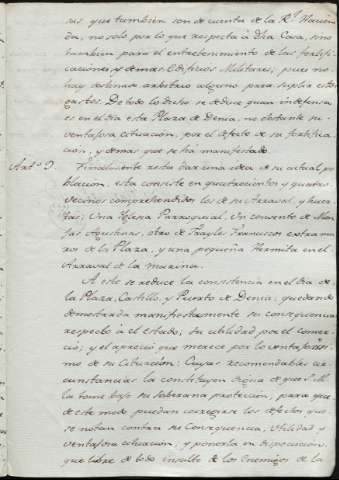 sus, que tambien son de cuenta de la Rl. Hacien
da, no solo por lo que respecta à dha Casa, sino
tambien para el entretenimiento de las fortifi
caciones, y demas Edificios Militares; pues no
hay destinado arbitrio alguno para suplir estos
gastos. De todo lo dicho se deduce quan indefensa
es en el dia esta Plaza de Denia, no obstante su
ventajosa situacion, por el defecto de su fortifica
cion, y demas que se ha manifestado.
Arto. 9. Finalmente resta dar una idea de su actual po
blacion. esta consiste en quatrocientos y quatro
vecinos comprehendidos los de su Arraval, y huer
tas; Una Iglesia Parroquial, Un convento de Mon
jas Agustinas, otro de Frayles Franciscos extramu
ros de la Plaza, y una pequeña Hermita en el
Arraval de la marina.
A esto se reduce la consistencia en el dia de
la Plaza, Castillo, y Puerto de Denia; quedando
demostrada manifiestamente su consequencia
respecto à el estado, su utilidad por el comer
cio; y el aprecio que merece por lo ventajosis
mo de su situacion: Cuyas recomendables cir
cunstancias la constituyen digna de que S. M.
la tome bajo su soberana proteccion, para que
de este modo puedan corregirse los defectos que
se notan contra su consequencia, utilidad y
ventajosa situacion, y ponerla en disposicion,
que libre de todo insulto de los Enemigos de la